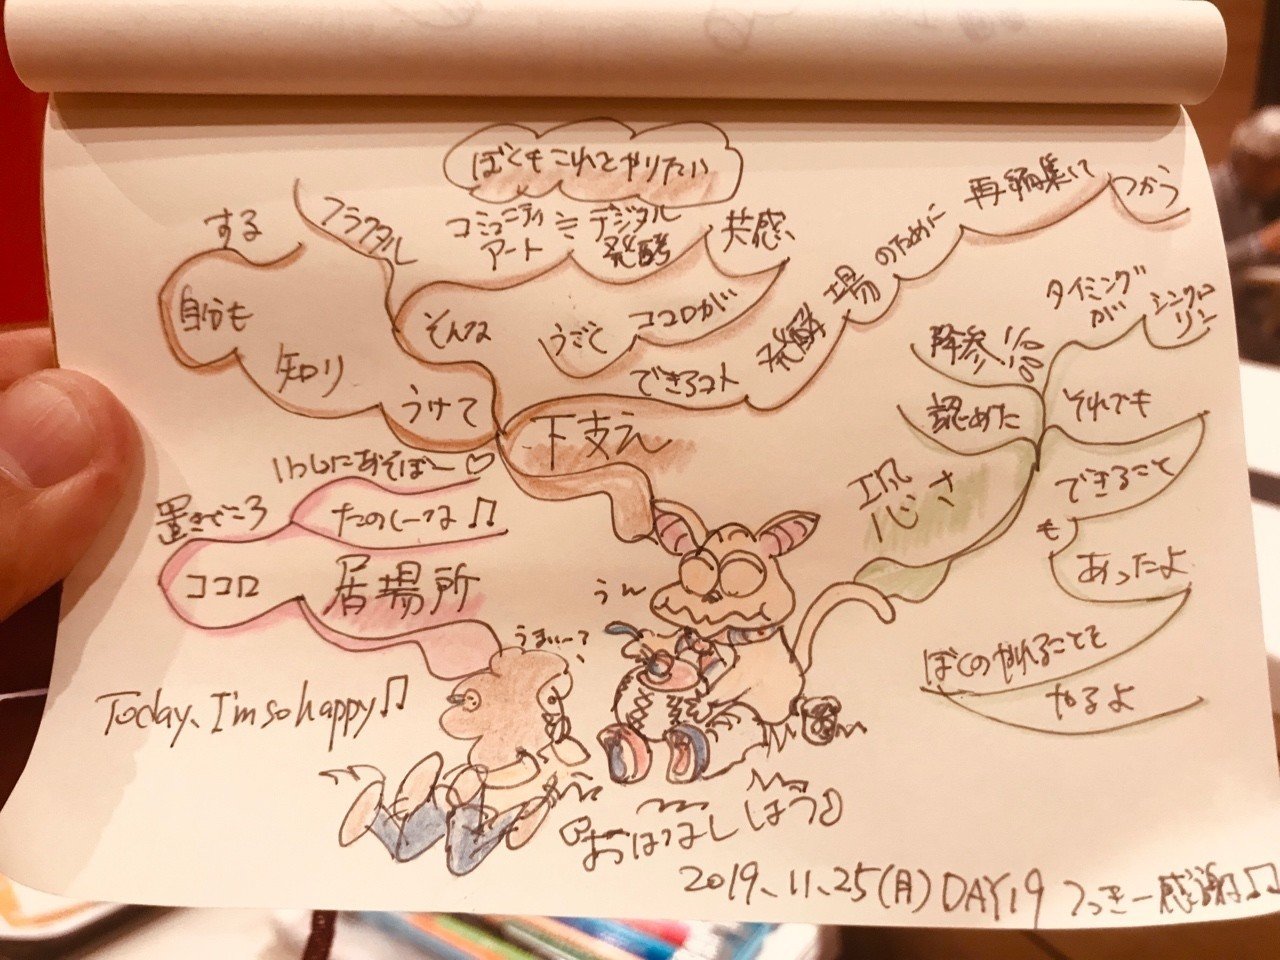 ぼくもこれとやりたい
フラクタル
コミュニティ
アート
≒
デジタル
発酵
共感
そんな
うごく
ココロが
する
自分も
知り
うけて
できるコト
発酵
場
のために
再編集して
つかう
下支え
いっしょにあそぼー♡
たのしーな♫
置きどころ
ココロ
居場所
降参
認めた
恐さ
タイミング
が
シンクロ
リン
それでも
できること
も
あったよ
ぼくのやれることを
やるよ
うん
うまぃー?
Today、I'm so happy♫
おはなし しよう♪
2019、11、25(月) DAY19 つっきー感謝♫